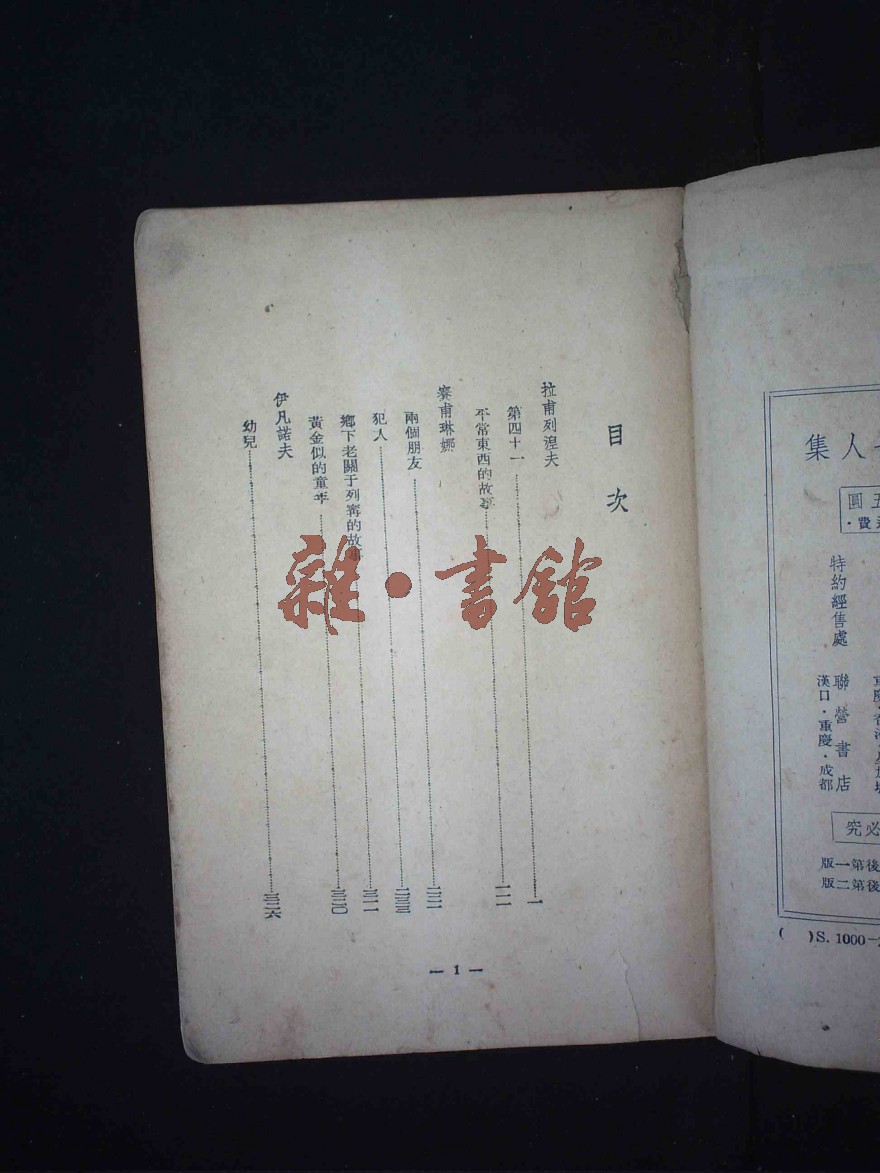 人集
五圓
費・
特約經售處
聯營書店
漢口・重慶・成都
必究
版一第後
版二第後
( )S. 1000—
目次
拉甫列湼夫
第四十一……一
平常東西的故事……一一一
賽甫琳娜
兩個朋友……二二一
犯人……二三三
鄉下老關于列甯的故事……三一一
黃金似的童年……三二〇
伊凡諾夫
幼兒……三二六
— 1 —
雜・書館